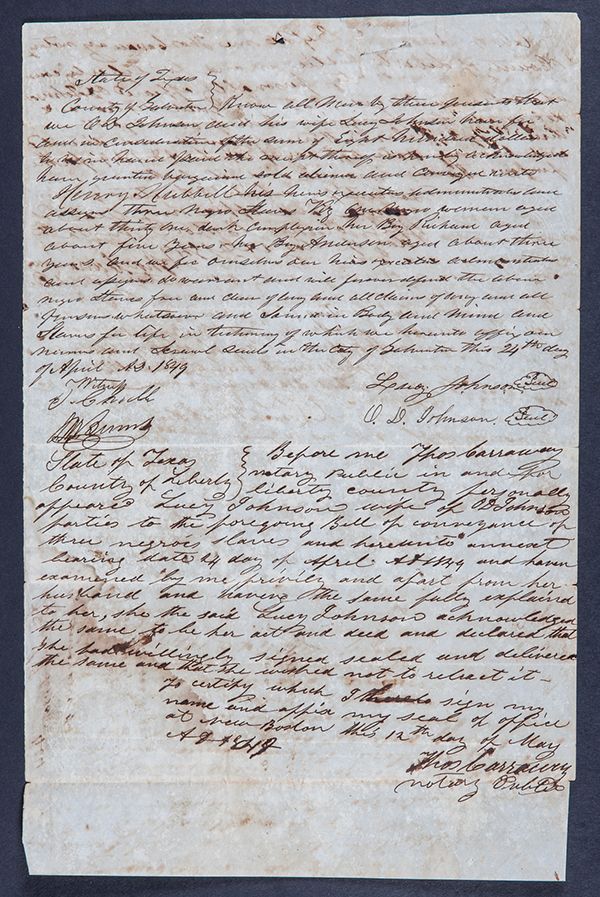 State of Texas
County of Galveston } Know all Men by these presents that
we O. D. Johnson and his wife Lucy Johnson have for
and in consideration of the sum of Eight Hundred Dollars
to us in hand paid the receipt thereof is hereby acknowledged
have granted bargained sold and conveyed unto
Henry Hubbell his heirs executors administrators and
assigns three Negro Slaves Viz woman aged
about thirty one dark complexion her Boy Richard aged
about five years her Boy Anderson aged about three
years and we for ourselves our heirs executors administrators
and assigns do warrant and will forever defend the above
negro slaves free and clear of any and all claims of any and all
persons whatsoever and sound in Body and mind and
Slaves for life in testimony of which we hereunto affix our
names and seals in the City of Galveston this 24th day
of April A.D. 1849
Witness
Lucy Johnson Seal
O. D. Johnson Seal
State of Texas
County of Liberty } Before me Thos Carraway
notary Public in and for
liberty county personally
appeared Lucy Johnson wife of O D Johnson
parties to the foregoing Bill of conveyance of
three negroes slaves and hereunto annexed
bearing date 24 day of April A D 1849 and haven
examined by me privily and apart from her
husband and having the same fully explained
to her, she the said Lucy Johnson acknowledged
the same to be her act and deed and declared that
she had willingly signed sealed and delivered
the same and that she wished not to retract it -
To certify which I sign my
name and affix my seal of office
at New Boston this 12th day of May
A D 1849
Thos Carraway
notary Public